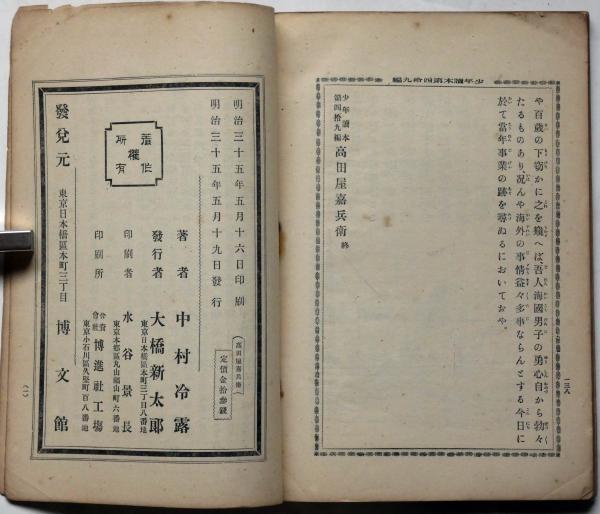 少年讀本第四拾九編
や百歲の下竊かに之を窺へば、吾人海國男子の勇心自から勃々
たるものあり況んや海外の事情益々多事ならんとする今日に
於て當年事業の跡を尋ぬるにおいておや。
少年讀本
第四拾九編
高田屋嘉兵衛 終
一三八
(高田屋嘉兵衛)
定價金拾參錢
明治三十五年五月十六日印刷
明治三十五年五月十九日發行
著者 中村冷露
發行者 大橋新太郎
東京日本橋區本町三丁目八番地
印刷者 水谷景長
東京本郷區丸山福山町六番地
印刷所 合資會社 博進社工場
東京小石川區久堅町百八番地
著作權所有
發兌元 東京日本橋區本町三丁目 博文館